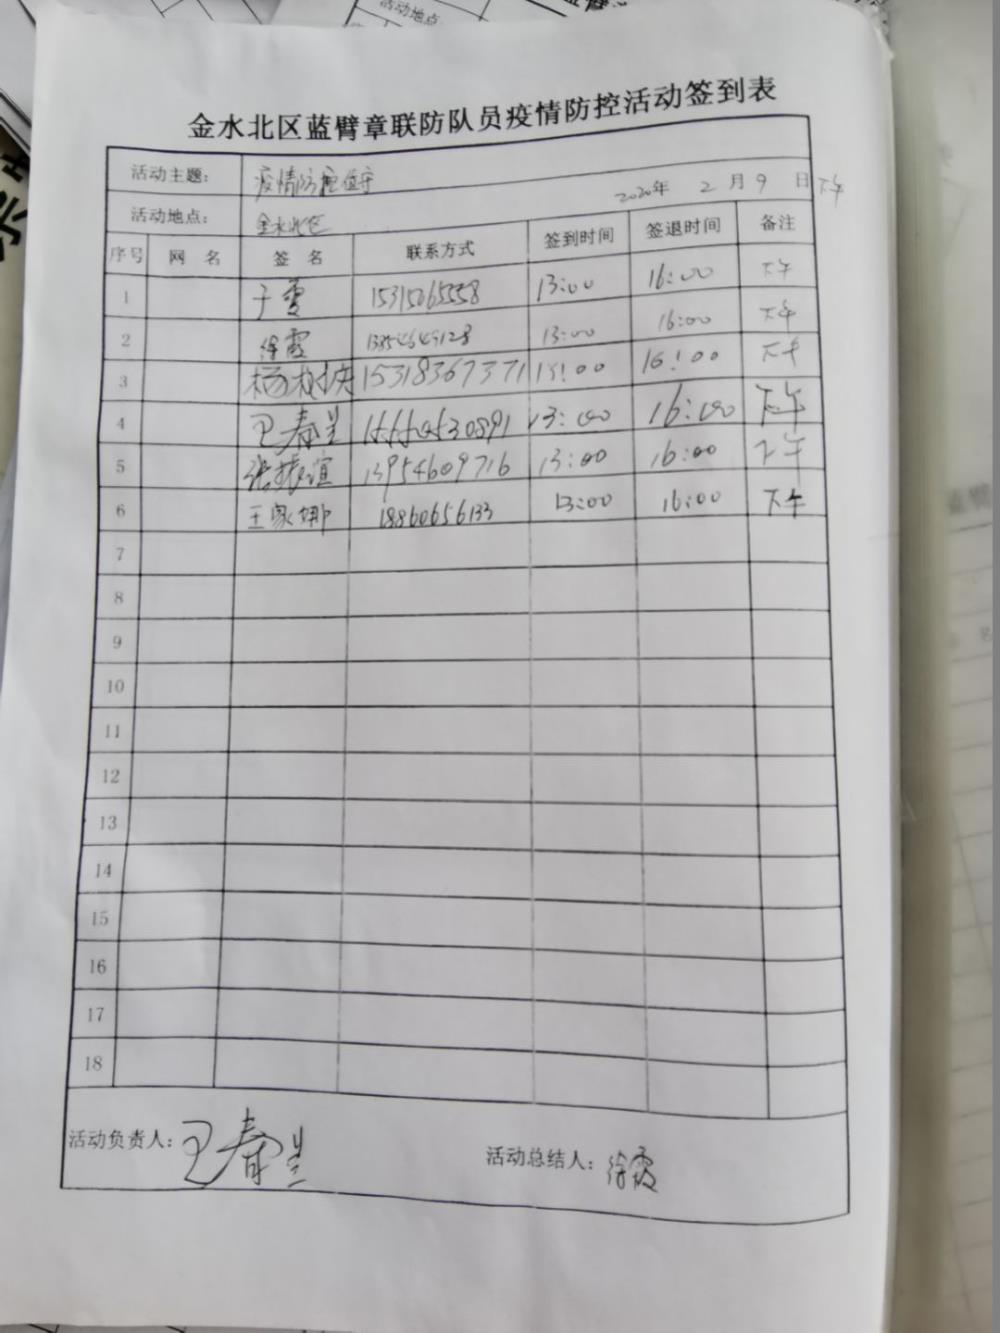 活动地点
金水北区蓝臂章联防队员疫情防控活动签到表
活动主题: 疫情防控值守 2020年 2月9日下午
活动地点: 金水北区
序号 网 名 签 名 联系方式 签到时间 签退时间 备注
1 于雪 13:00 16:00 下午
2 徐霞 13:00 16:00 下午
3 15318367371 13:00 16:00 下午
4 王春兰 13:00 16:00 下午
5 张振谊 13954609716 13:00 16:00 下午
6 王家娜 18860656133 13:00 16:00 下午
7
8
9
10
11
12
13
14
15
16
17
18
活动负责人: 王春兰 活动总结人: 徐霞